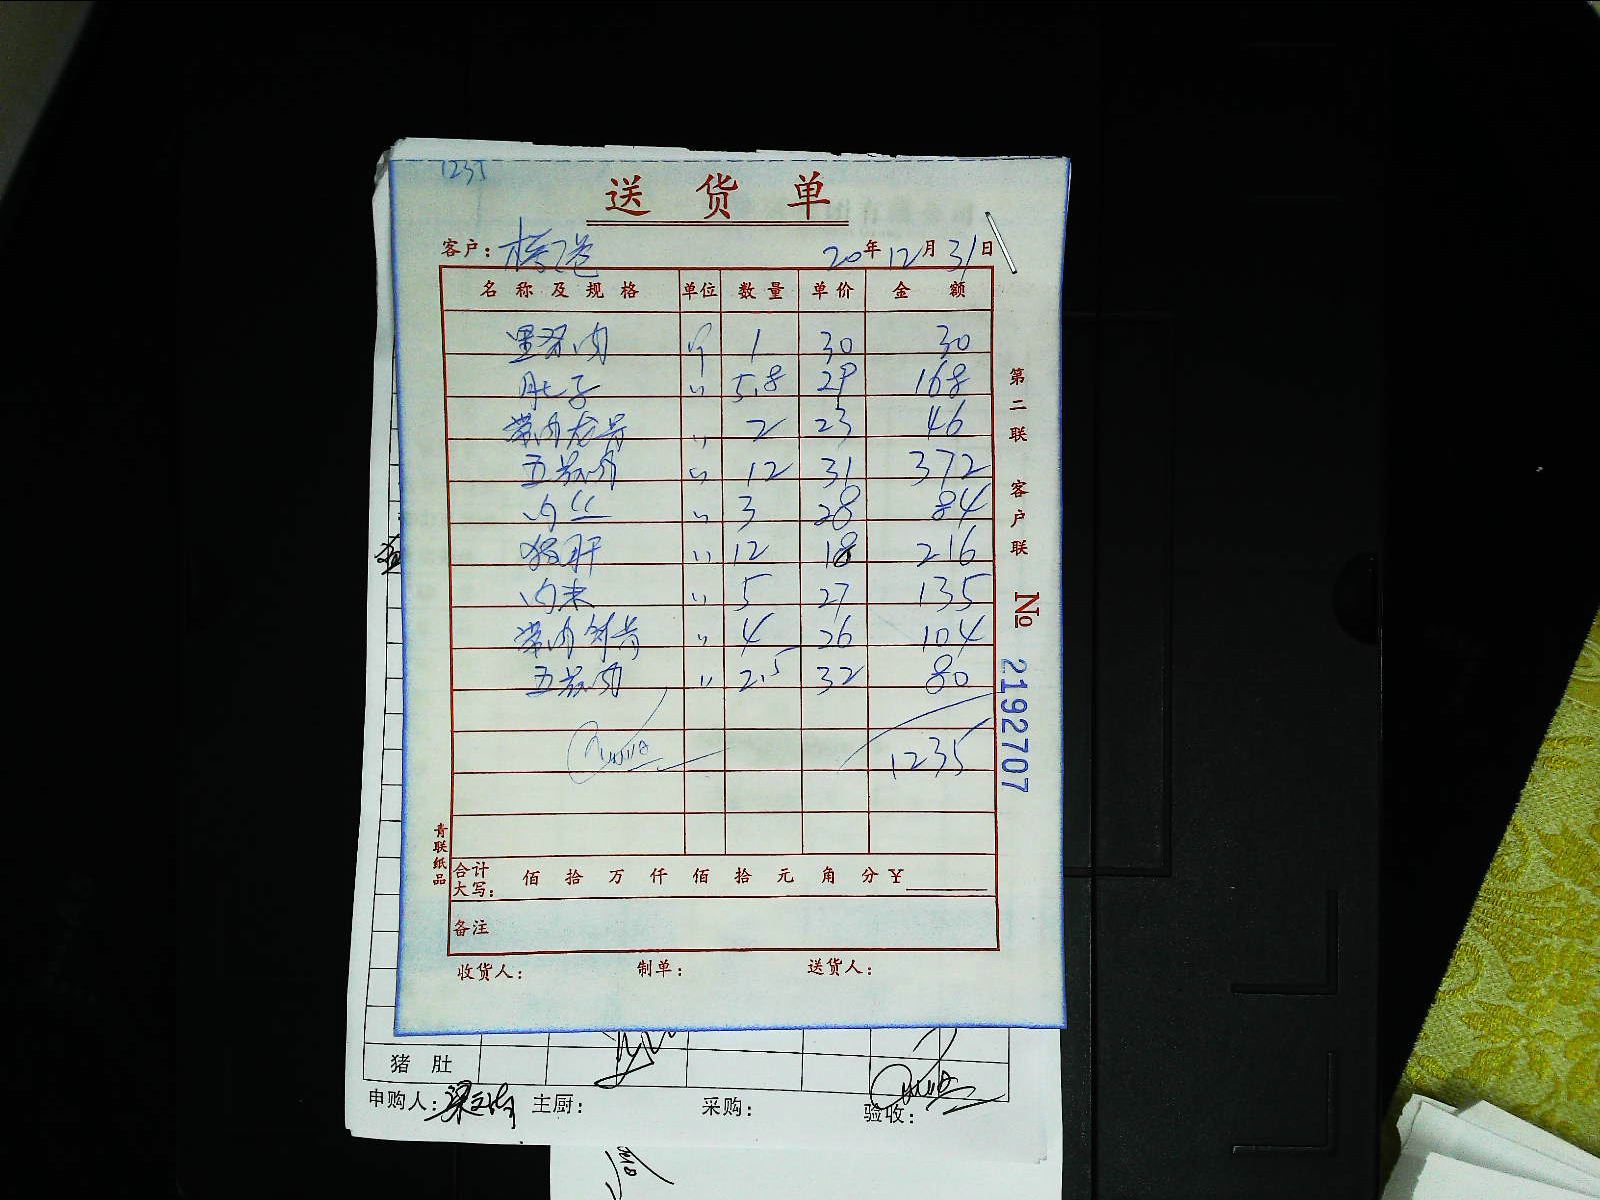 1235
送货单
客户： 20年12月31日
名称及规格 单位 数量 单价 金额
里脊肉 斤 1 30 30
肚子 〃 5.8 29 168
带肉龙骨 〃 2 23 46
五花肉 〃 12 31 372
肉丝 〃 3 28 84
猪肝 〃 12 18 216
肉末 〃 5 27 135
带肉筒骨 〃 4 26 104
五花肉 〃 2.5 32 80
1235
合计大写： 佰 拾 万 仟 佰 拾 元 角 分 ￥
备注
收货人： 制单： 送货人：
第二联 客户联
№ 2192707
青联纸品
猪肚
申购人： 主厨： 采购： 验收：